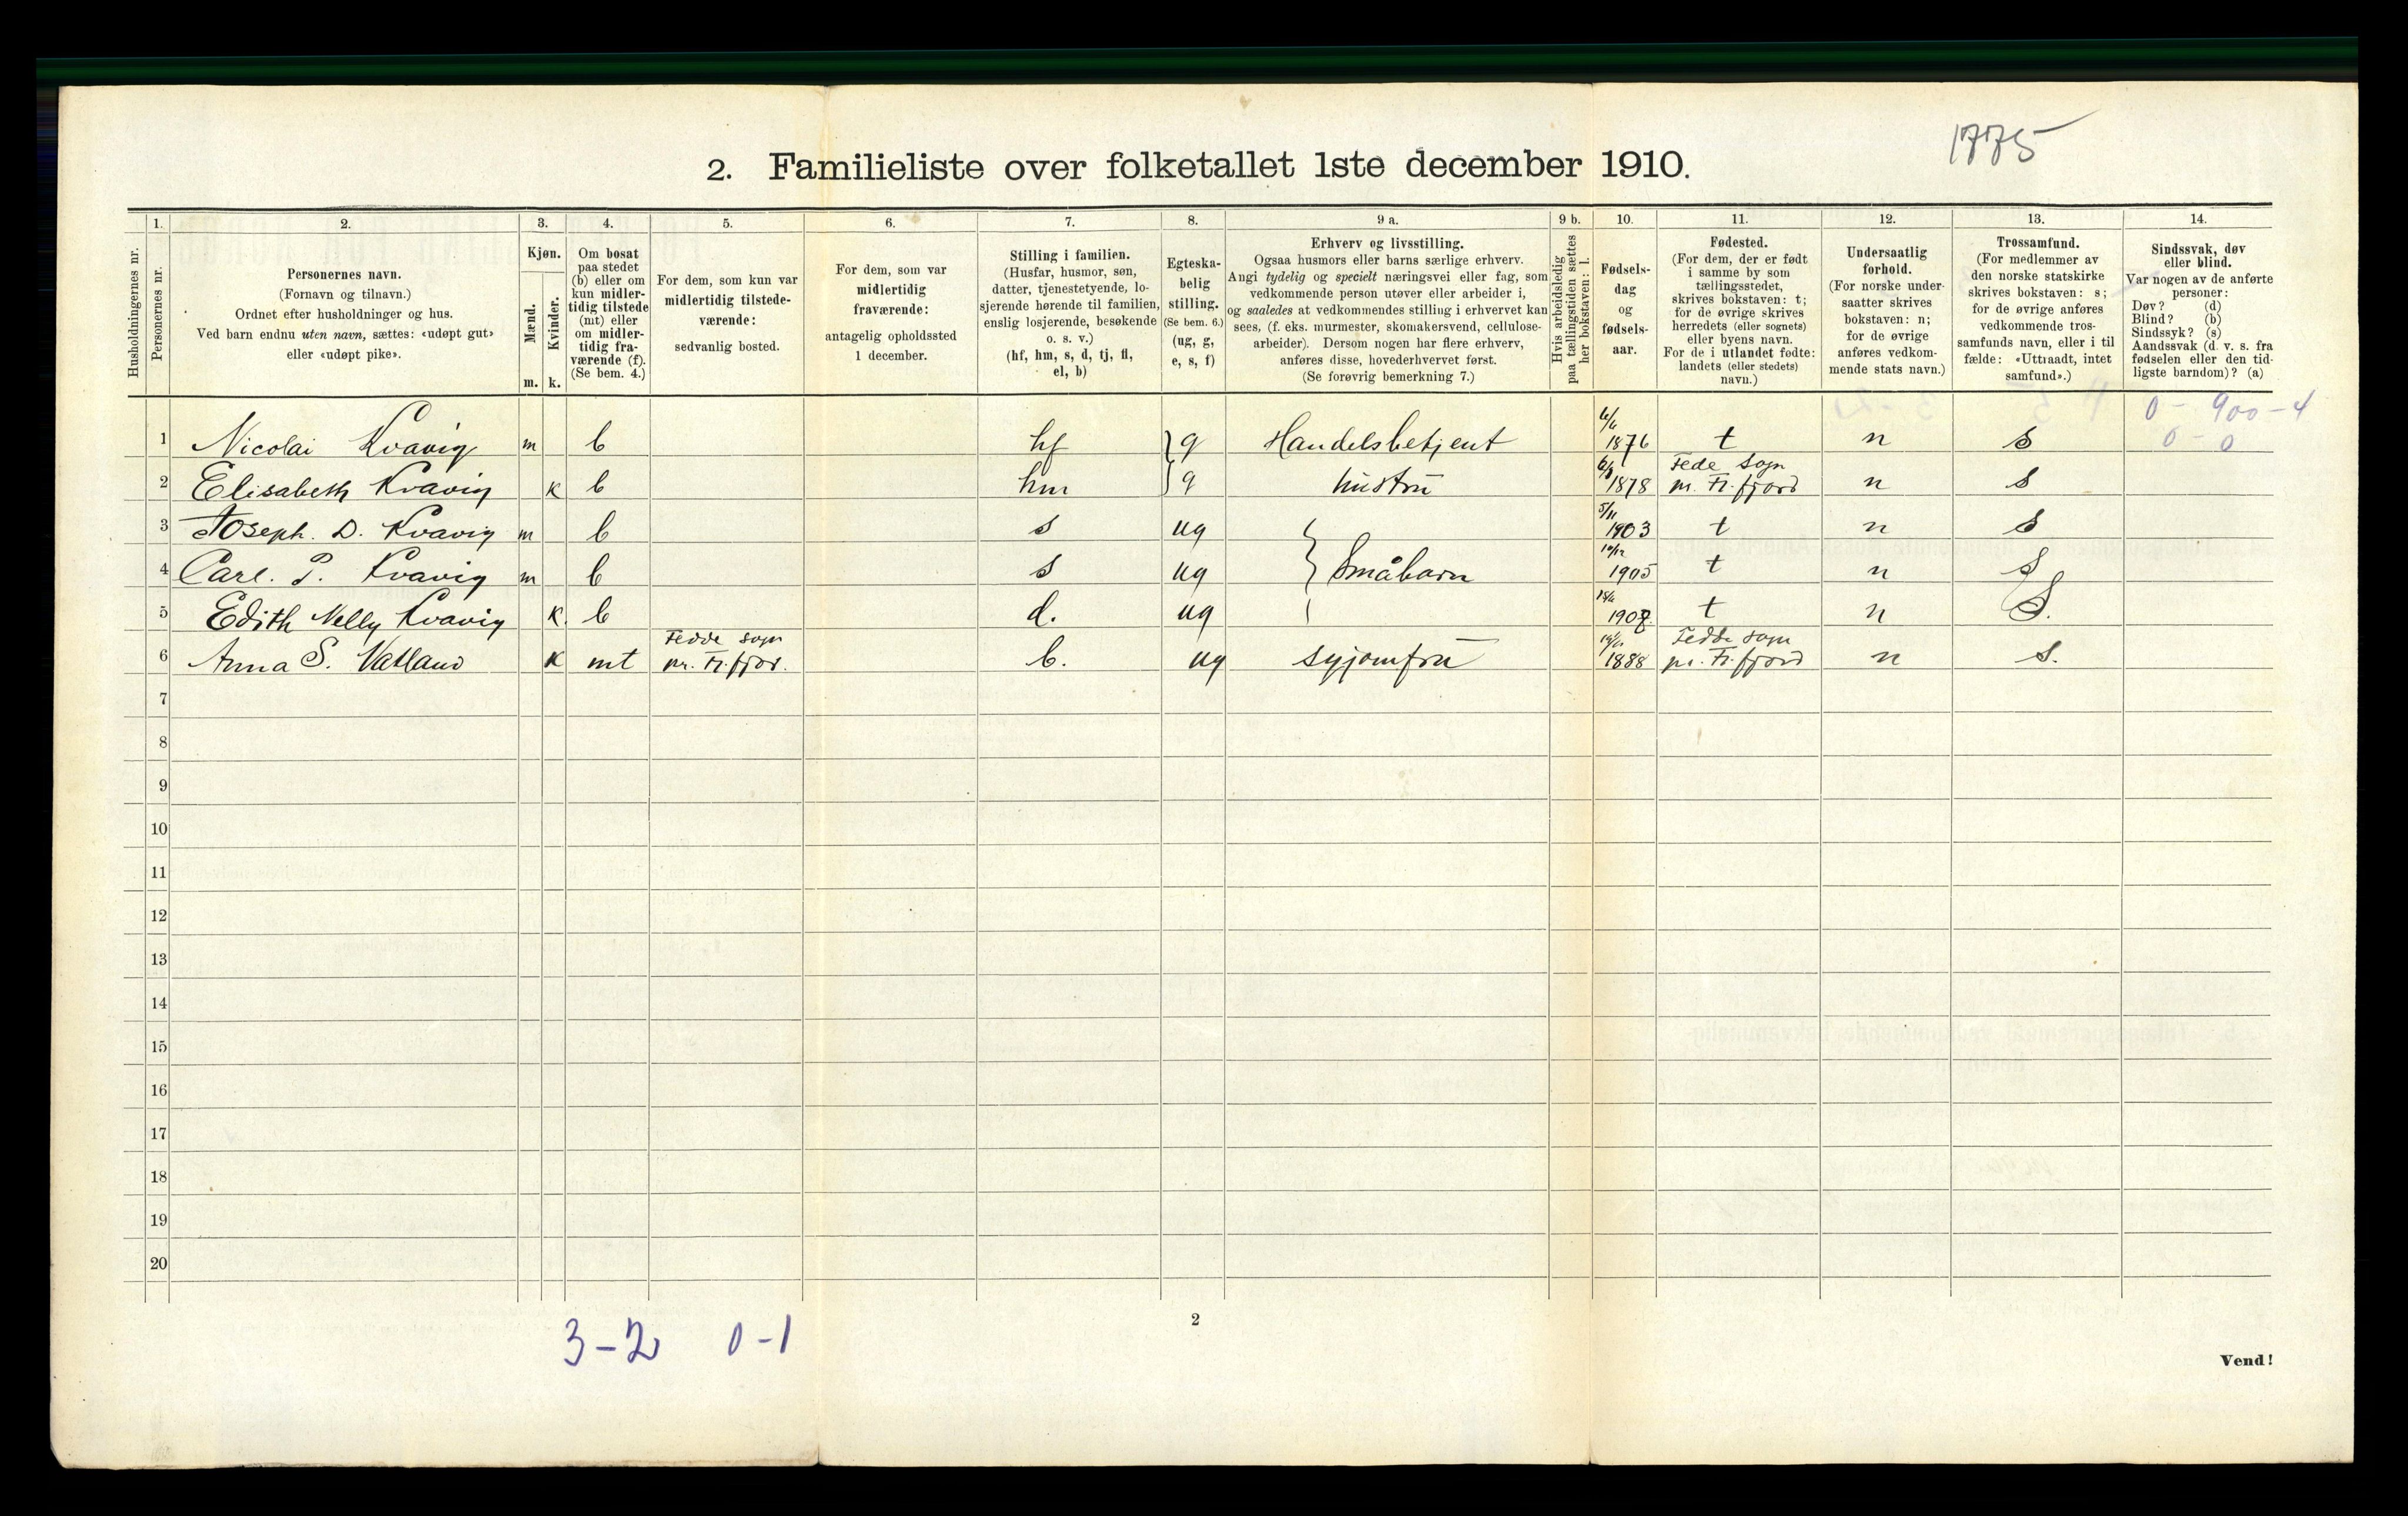 1775
2. Familieliste over folketallet 1ste december 1910.
1. 2. 3. 4. 5. 6. 7. 8. 9 a. 9 b. 10. 11. 12. 13. 14.
Husholdningernes nr.
Personernes nr.
Personernes navn.
(Fornavn og tilnavn.)
Ordnet efter husholdninger og hus.
Ved barn endnu uten navn, sættes: «udøpt gut»
eller «udøpt pike».
Kjøn.
Mænd.
Kvinder.
m. k.
Om bosat
paa stedet
(b) eller om
kun midler-
tidig tilstede
(mt) eller
om midler-
tidig fra-
værende (f).
(Se bem. 4.)
For dem, som kun var
midlertidig tilstede-
værende:
sedvanlig bosted.
For dem, som var
midlertidig
fraværende:
antagelig opholdssted
1 december.
Stilling i familien.
(Husfar, husmor, søn,
datter, tjenestetyende, lo-
sjerende hørende til familien,
enslig losjerende, besøkende
o. s. v.)
(hf, hm, s, d, tj, fl,
el, b)
Egteska-
belig
stilling.
(Se bem. 6.)
(ug, g,
e, s, f)
Erhverv og livsstilling.
Ogsaa husmors eller barns særlige erhverv.
Angi tydelig og specielt næringsvei eller fag, som
vedkommende person utøver eller arbeider i,
og saaledes at vedkommendes stilling i erhvervet kan
sees, (f. eks. murmester, skomakersvend, cellulose-
arbeider). Dersom nogen har flere erhverv,
anføres disse, hovederhvervet først.
(Se forøvrig bemerkning 7.)
Hvis arbeidsledig
paa tællingstiden sættes
her bokstaven: l.
Fødsels-
dag
og
fødsels-
aar.
Fødested.
(For dem, der er født
i samme by som
tællingsstedet,
skrives bokstaven: t;
for de øvrige skrives
herredets (eller sognets)
eller byens navn.
For de i utlandet fødte:
landets (eller stedets)
navn.)
Undersaatlig
forhold.
(For norske under-
saatter skrives
bokstaven: n;
for de øvrige
anføres vedkom-
mende stats navn.)
Trossamfund.
(For medlemmer av
den norske statskirke
skrives bokstaven: s;
for de øvrige anføres
vedkommende tros-
samfunds navn, eller i til
fælde: «Uttraadt, intet
samfund».)
Sindssvak, døv
eller blind.
Var nogen av de anførte
personer:
Døv? (d)
Blind? (b)
Sindssyk? (s)
Aandssvak (d. v. s. fra
fødselen eller den tid-
ligste barndom)? (a)
0 - 900 - 4
0 - 0
1 Nicolai Kvavig m b hf g Handelsbetjent 1876 t n s
2 Elisabeth Kvavig k b hm g hustru 1878 Fede sogn pr. Fl.fjord n s
3 Joseph. D. Kvavig m b s ug 5/11 1903 t n s
4 Carl. P. Kvavig m b s ug Småbarn 10/12 1905 t n s
5 Edith Nelly Kvavig k. b d. ug 1907 t n S.
6 Anna S. Vatland k mt Fedde sogn pr. Fl.fjor. b. ug syjomfru 1888 Fedde sogn pr. Fl.fjord n s.
7
8
9
10
11
12
13
14
15
16
17
18
19
20
3 - 2 0 - 1
2
Vend!